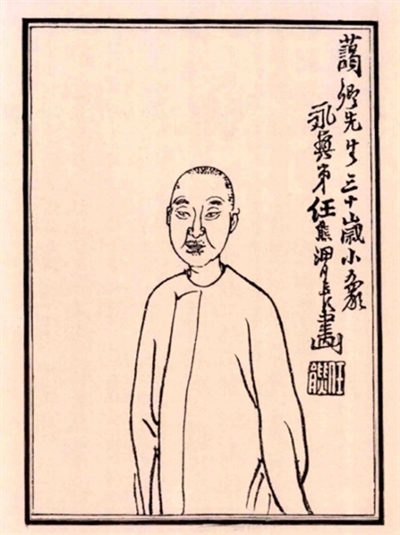 藹卿先生三十歲小象
永興弟任熊渭長畫
任熊